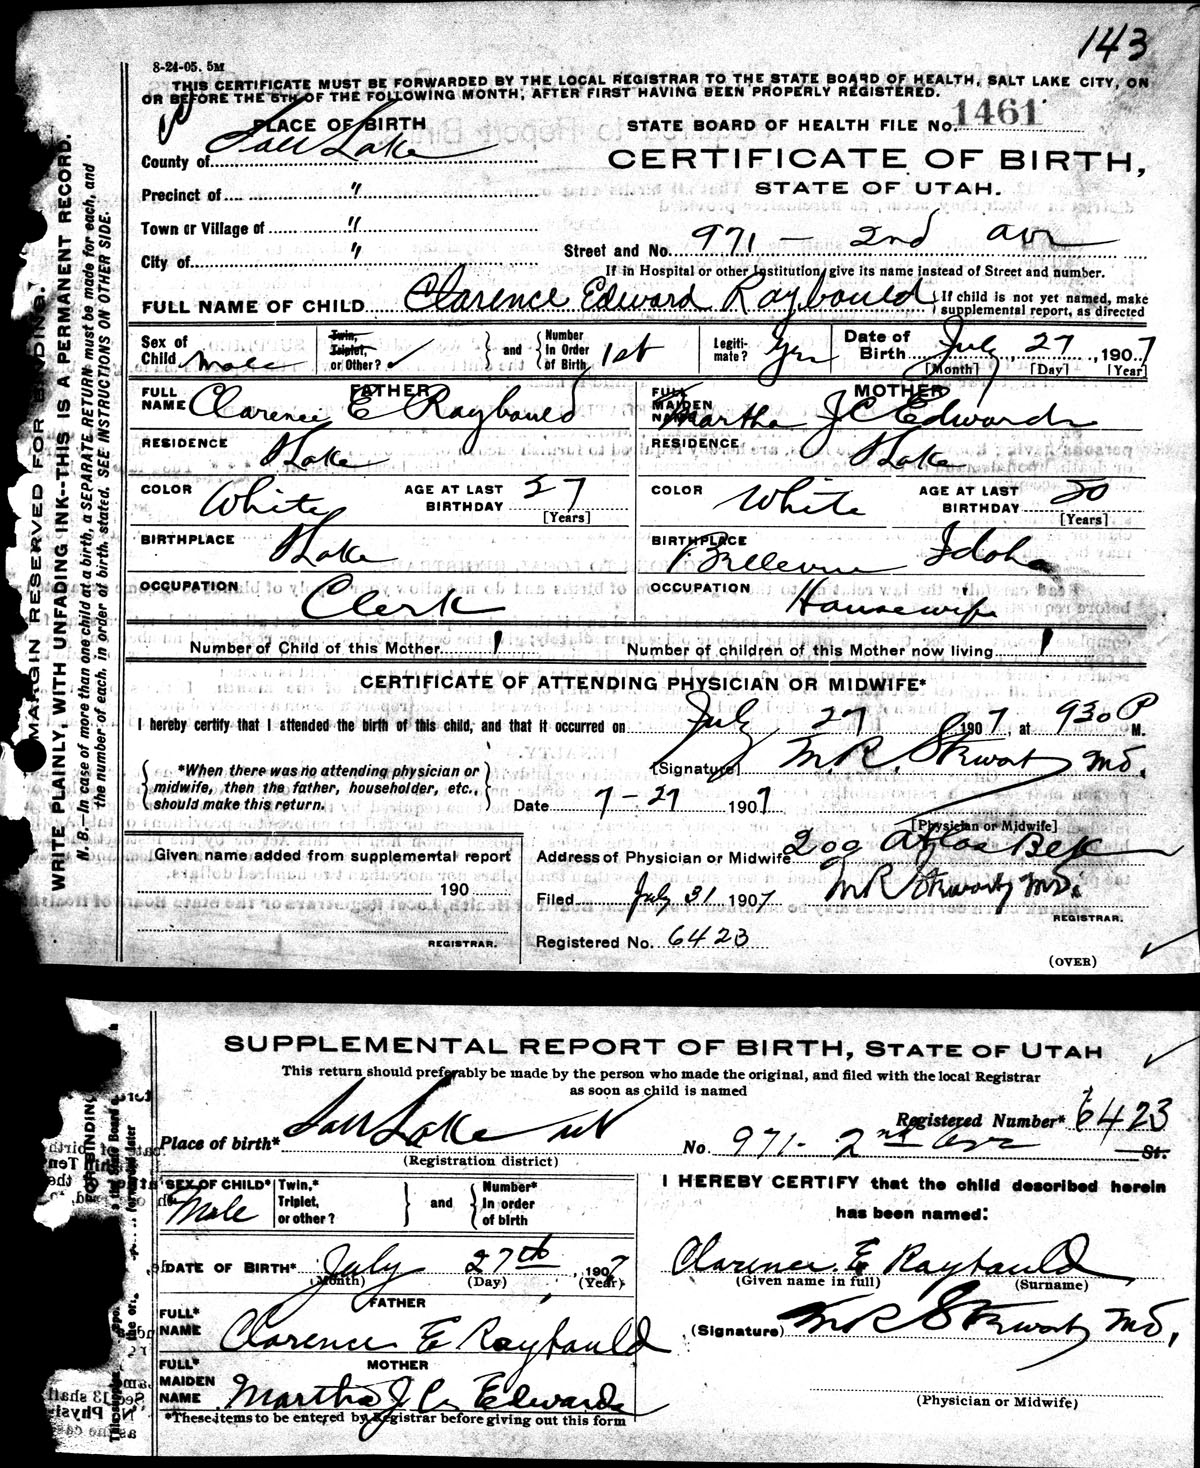 143
8-24-05. 5M
THIS CERTIFICATE MUST BE FORWARDED BY THE LOCAL REGISTRAR TO THE STATE BOARD OF HEALTH, SALT LAKE CITY, ON
OR BEFORE THE 5TH OF THE FOLLOWING MONTH, AFTER FIRST HAVING BEEN PROPERLY REGISTERED.
PLACE OF BIRTH
STATE BOARD OF HEALTH FILE No. 1461
County of Salt Lake
CERTIFICATE OF BIRTH,
STATE OF UTAH.
Precinct of "
Town or Village of "
City of "
Street and No. 971 - 2nd ave
If in Hospital or other Institution, give its name instead of Street and number.
FULL NAME OF CHILD Clarence Edward Raybould { If child is not yet named, make
supplemental report, as directed
Sex of Child Male
Twin, Triplet, or Other? ✓
and
Number in Order of Birth 1st
Legitimate? Yes
Date of Birth July 27, 1907
[Month] [Day] [Year]
FATHER
FULL NAME Clarence E Raybould
MOTHER
FULL MAIDEN NAME Martha J C Edwards
RESIDENCE S Lake
RESIDENCE S Lake
COLOR White
AGE AT LAST BIRTHDAY 27
[Years]
COLOR White
AGE AT LAST BIRTHDAY 20
[Years]
BIRTHPLACE S Lake
BIRTHPLACE Bellevue Idoho
OCCUPATION Clerk
OCCUPATION Housewife
Number of Child of this Mother 1
Number of children of this Mother now living 1
CERTIFICATE OF ATTENDING PHYSICIAN OR MIDWIFE*
I hereby certify that I attended the birth of this child, and that it occurred on July 27 1907, at 930 P M.
*When there was no attending physician or
midwife, then the father, householder, etc.,
should make this return.
[Signature] M. R. Stewart MD.
Date 7-27 1907
[Physician or Midwife]
Given name added from supplemental report
190
REGISTRAR.
Address of Physician or Midwife 209 Atlas Blk
Filed July 31 1907 M R Stewart MD.
REGISTRAR.
Registered No. 6423
(OVER)
MARGIN RESERVED FOR BINDING.
WRITE PLAINLY, WITH UNFADING INK--THIS IS A PERMANENT RECORD.
N. B.—In case of more than one child at a birth, a SEPARATE RETURN must be made for each, and
the number of each, in order of birth, stated. SEE INSTRUCTIONS ON OTHER SIDE.
SUPPLEMENTAL REPORT OF BIRTH, STATE OF UTAH
This return should preferably be made by the person who made the original, and filed with the local Registrar
as soon as child is named
Registered Number* 6423
Place of birth* Salt Lake
(Registration district)
No. 971- 2nd ave St.
SEX OF CHILD* Male
Twin,* Triplet, or other?
and
Number* in order of birth
I HEREBY CERTIFY that the child described herein
has been named:
DATE OF BIRTH* July 27th, 1907
(Month) (Day) (Year)
Clarence E Raybould
(Given name in full) (Surname)
FATHER
FULL* NAME Clarence E Raybould
(Signature) M R Stewart MD,
MOTHER
FULL* MAIDEN NAME Martha J C Edwards
(Physician or Midwife)
*These items to be entered by Registrar before giving out this form